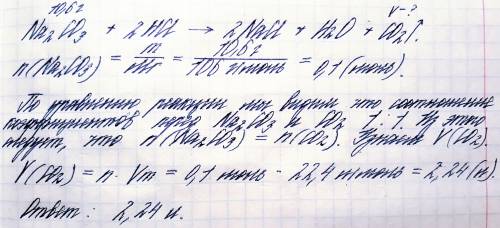 10,6г V-?
Na₂CO₃ + 2HCl → 2NaCl + H₂O + CO₂↑.
n(Na₂CO₃) = m/Mr = 10,6г/106 г/моль = 0,1 (моль).
По уравнению реакции мы видим что соотношение
коэффициентов пред Na₂CO₃ и CO₂ 1:1. Из этого
следует, что n(Na₂CO₃) = n(CO₂). Узнаем V(CO₂).
V(CO₂) = n · Vm = 0,1 моль · 22,4 л/моль = 2,24 (л).
Ответ: 2,24 л.